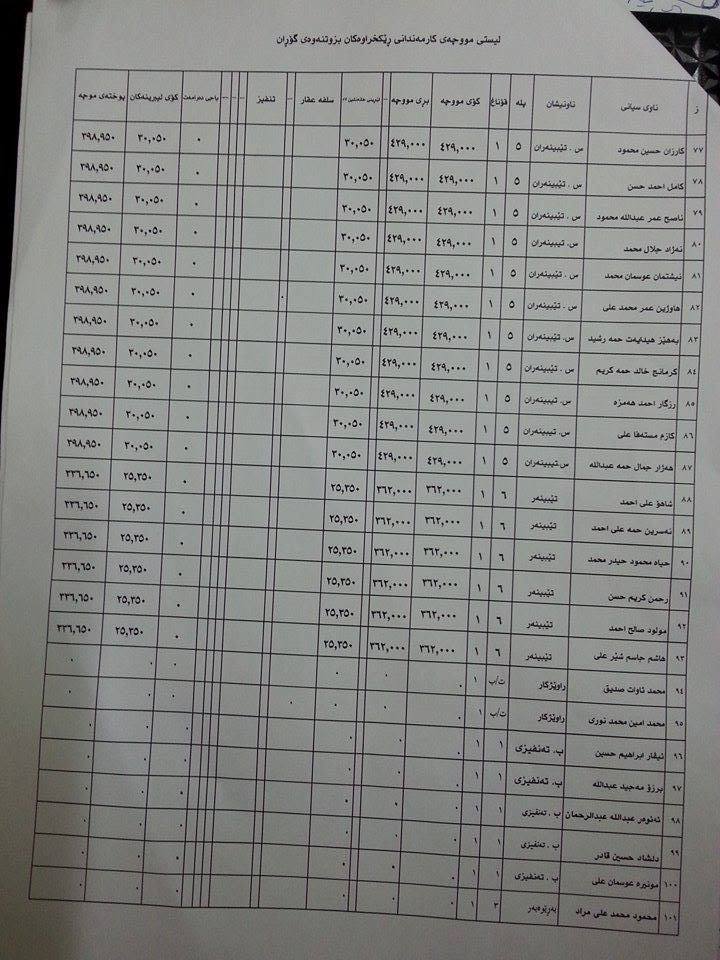 لیستی مووچەی کارمەندانی ڕێکخراوەکان بزوتنەوەی گۆڕان
ز ناوی سیانی ناونیشان پلە قۆناغ کۆی مووچە بڕی مووچە سلفە عقار تنفیز کۆی لیبڕینەکان پوختەی موچە
٧٧ کارزان حسین محمود س . تێبینەران ٥ ١ ٤٢٩,٠٠٠ ٤٢٩,٠٠٠ ٣٠,٠٥٠ ٠ ٣٠,٠٥٠ ٣٩٨,٩٥٠
٧٨ کامل احمد حسن س . تێبینەران ٥ ١ ٤٢٩,٠٠٠ ٤٢٩,٠٠٠ ٣٠,٠٥٠ ٠ ٣٠,٠٥٠ ٣٩٨,٩٥٠
٧٩ ناصح عمر عبدالله محمود س . تێبینەران ٥ ١ ٤٢٩,٠٠٠ ٤٢٩,٠٠٠ ٣٠,٠٥٠ ٠ ٣٠,٠٥٠ ٣٩٨,٩٥٠
٨٠ نەژاد جلال محمد س. تیبینەران ٥ ١ ٤٢٩,٠٠٠ ٤٢٩,٠٠٠ ٣٠,٠٥٠ ٠ ٣٠,٠٥٠ ٣٩٨,٩٥٠
٨١ نیشتمان عوسمان محمد س . تێبینەران ٥ ١ ٤٢٩,٠٠٠ ٤٢٩,٠٠٠ ٣٠,٠٥٠ ٠ ٣٠,٠٥٠ ٣٩٨,٩٥٠
٨٢ هاوژین عمر محمد علی س . تێبینەران ٥ ١ ٤٢٩,٠٠٠ ٤٢٩,٠٠٠ ٣٠,٠٥٠ ٠ ٠ ٣٠,٠٥٠ ٣٩٨,٩٥٠
٨٣ بەهێز هیدایەت حمە رشید س. تێبینەران ٥ ١ ٤٢٩,٠٠٠ ٤٢٩,٠٠٠ ٣٠,٠٥٠ ٠ ٣٠,٠٥٠ ٣٩٨,٩٥٠
٨٤ کرمانج خالد حمە کریم س . تێبینەران ٥ ١ ٤٢٩,٠٠٠ ٤٢٩,٠٠٠ ٣٠,٠٥٠ ٠ ٣٠,٠٥٠ ٣٩٨,٩٥٠
٨٥ رزگار احمد هەمزە س. تیبینەران ٥ ١ ٤٢٩,٠٠٠ ٤٢٩,٠٠٠ ٣٠,٠٥٠ ٠ ٣٠,٠٥٠ ٣٩٨,٩٥٠
٨٦ کازم مستەفا علی س . تیبینەران ٥ ١ ٤٢٩,٠٠٠ ٤٢٩,٠٠٠ ٣٠,٠٥٠ ٠ ٣٠,٠٥٠ ٣٩٨,٩٥٠
٨٧ هەژار جمال حمە عبدالله س.تیبینەران ٥ ١ ٤٢٩,٠٠٠ ٤٢٩,٠٠٠ ٣٠,٠٥٠ ٠ ٣٠,٠٥٠ ٣٩٨,٩٥٠
٨٨ شاهۆ علی احمد تێبینەر ٦ ١ ٣٦٢,٠٠٠ ٣٦٢,٠٠٠ ٢٥,٣٥٠ ٠ ٢٥,٣٥٠ ٣٣٦,٦٥٠
٨٩ نەسرین حمە علی احمد تێبینەر ٦ ١ ٣٦٢,٠٠٠ ٣٦٢,٠٠٠ ٢٥,٣٥٠ ٠ ٢٥,٣٥٠ ٣٣٦,٦٥٠
٩٠ حیاە محمود حیدر محمد تێبینەر ٦ ١ ٣٦٢,٠٠٠ ٣٦٢,٠٠٠ ٢٥,٣٥٠ ٠ ٢٥,٣٥٠ ٣٣٦,٦٥٠
٩١ رحمن کریم حسن تێبینەر ٦ ١ ٣٦٢,٠٠٠ ٣٦٢,٠٠٠ ٢٥,٣٥٠ ٠ ٢٥,٣٥٠ ٣٣٦,٦٥٠
٩٢ مولود صالح احمد تێبینەر ٦ ١ ٣٦٢,٠٠٠ ٣٦٢,٠٠٠ ٢٥,٣٥٠ ٠ ٢٥,٣٥٠ ٣٣٦,٦٥٠
٩٣ هاشم جاسم شێر علی تێبینەر ٦ ١ ٣٦٢,٠٠٠ ٣٦٢,٠٠٠ ٢٥,٣٥٠ ٠ ٢٥,٣٥٠ ٣٣٦,٦٥٠
٩٤ محمد ئاوات صدیق راوێژکار ت/ب ١ ٠ ٠ ٠ ٠ ٠ ٠
٩٥ محمد امین محمد نوری راوێژکار ت/ب ١ ٠ ٠ ٠ ٠ ٠ ٠ ٠
٩٦ نیفار ابراهیم حسین ب. تەنفیزی ١ ١ ٠ ٠ ٠ ٠ ٠
٩٧ برزۆ مەجید عبدالله ب. تەنفیزی ١ ١ ٠ ٠ ٠ ٠ ٠
٩٨ ئەنوەر عبدالله عبدالرحمان ب . تەنفیزی ١ ١ ٠ ٠ ٠ ٠ ٠
٩٩ دلشاد حسین قادر ب . تەنفیزی ١ ١ ٠ ٠ ٠ ٠ ٠
١٠٠ مونیرە عوسمان علی ب . تەنفیزی ١ ١ ٠ ٠ ٠ ٠ ٠
١٠١ محمود محمد علی مراد بەڕێوەبەر ٣ ١ ٠ ٠ ٠ ٠ ٠